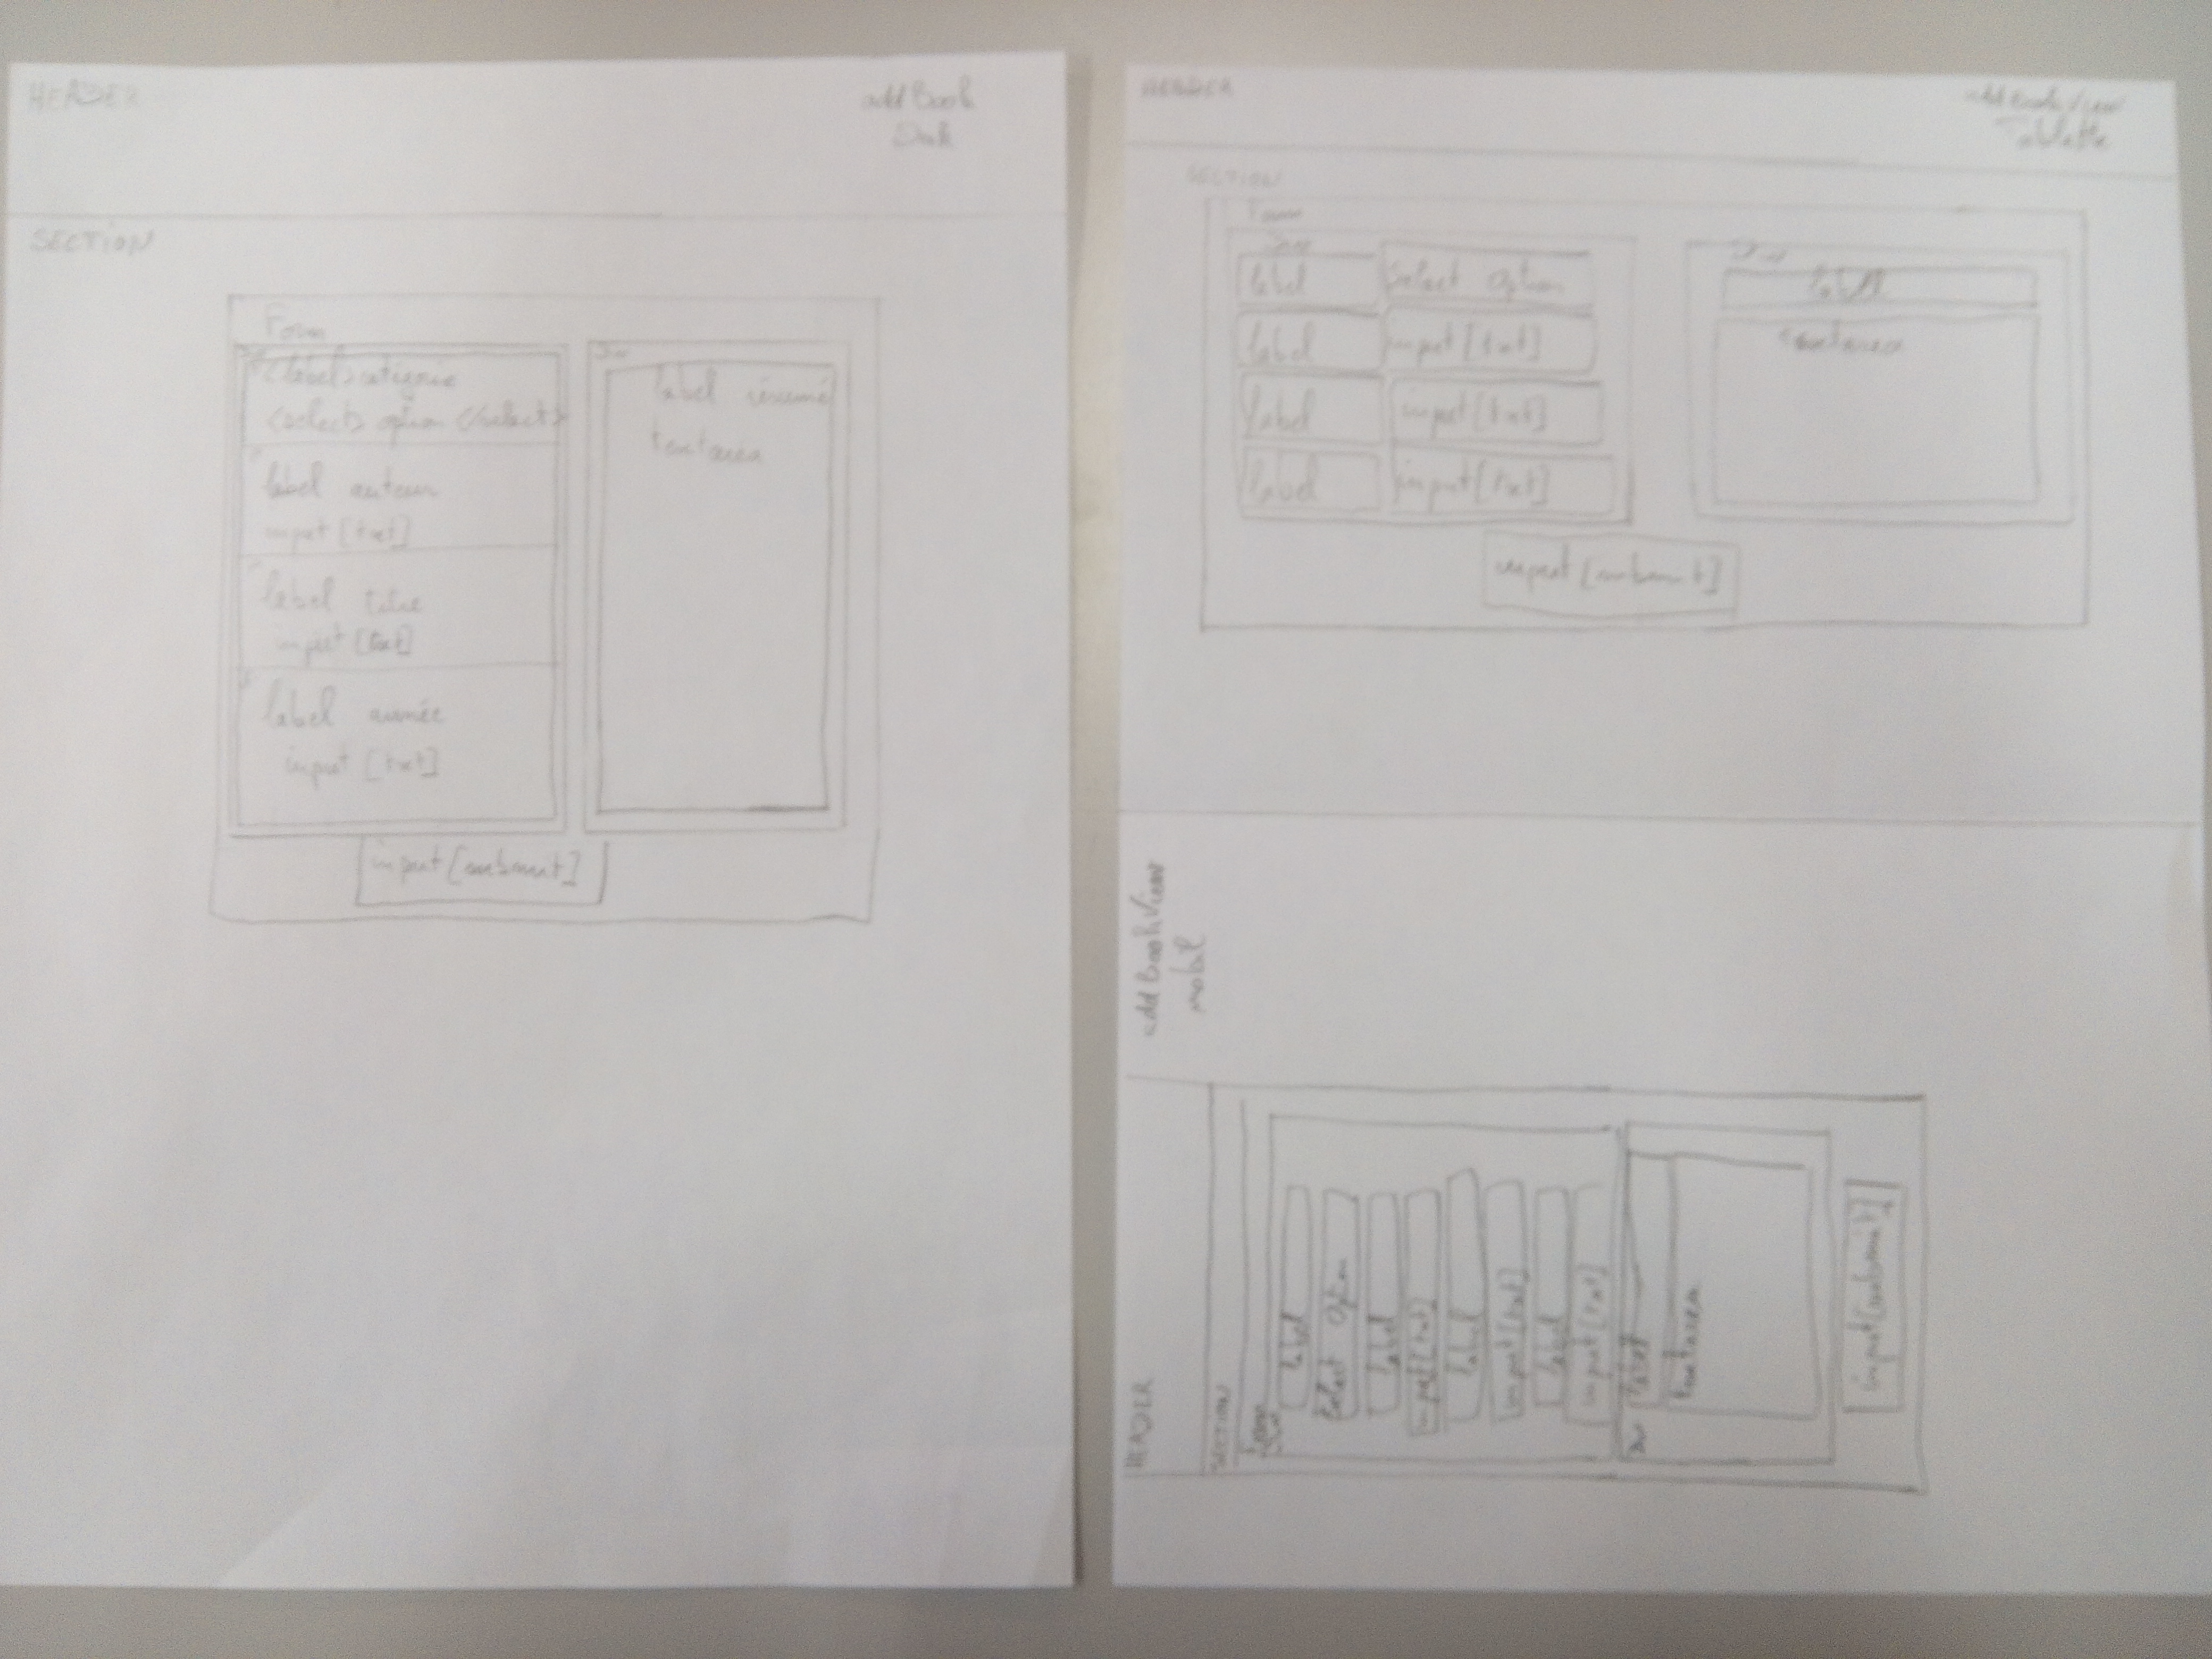 HEADER
add Book
Desk
SECTION
Form
<label> catégorie
<select> option </select>
label auteur
input [txt]
label titre
input [txt]
label année
input [txt]
Div
label résumé
textarea
input [submit]
HEADER
add Book View
Tablette
SECTION
Form
Div
label
select option
label
input [txt]
label
input [txt]
label
input [txt]
Div
label
textarea
input [submit]
add Book View
mobil
HEADER
SECTION
Form
Div
label
select option
label
input [txt]
label
input [txt]
label
input [txt]
Div
label
textarea
input [submit]